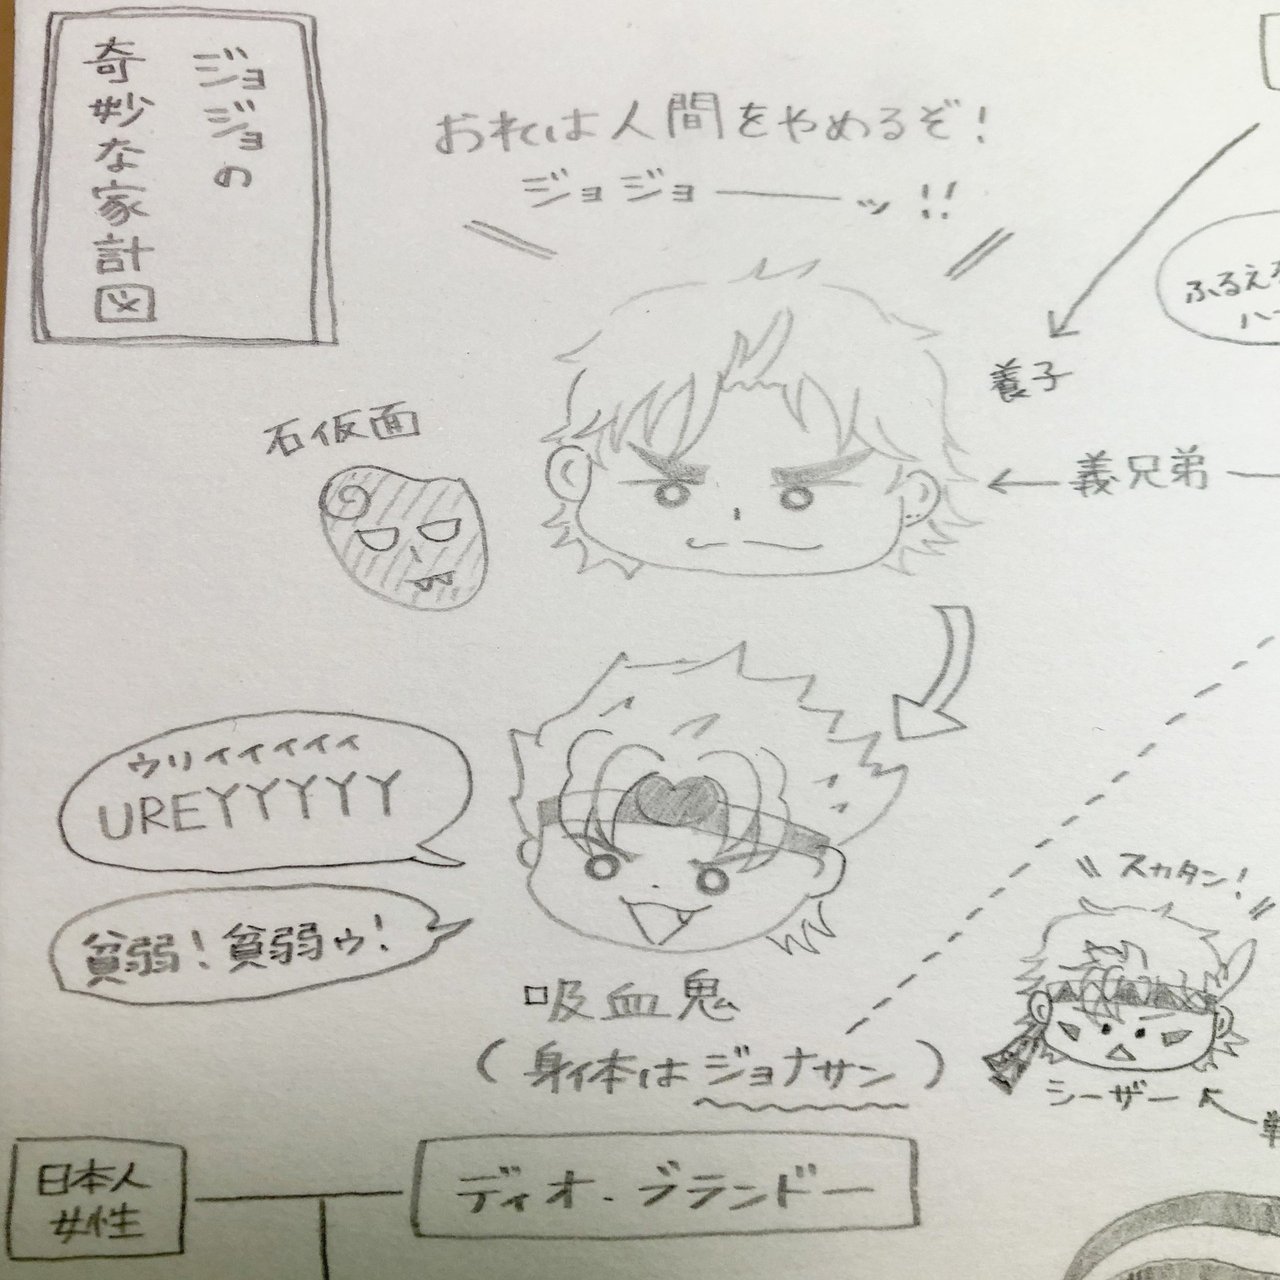 ジョジョの
奇妙な家計図
おれは人間をやめるぞ!
ジョジョ――ッ!!
養子
ふるえ
ハー
石仮面
義兄弟
ウリィィィィィ
UREYYYYY
貧弱!貧弱ゥ!
スカタン!
吸血鬼
(身体はジョナサン)
シーザー
日本人
女性
ディオ・ブランドー